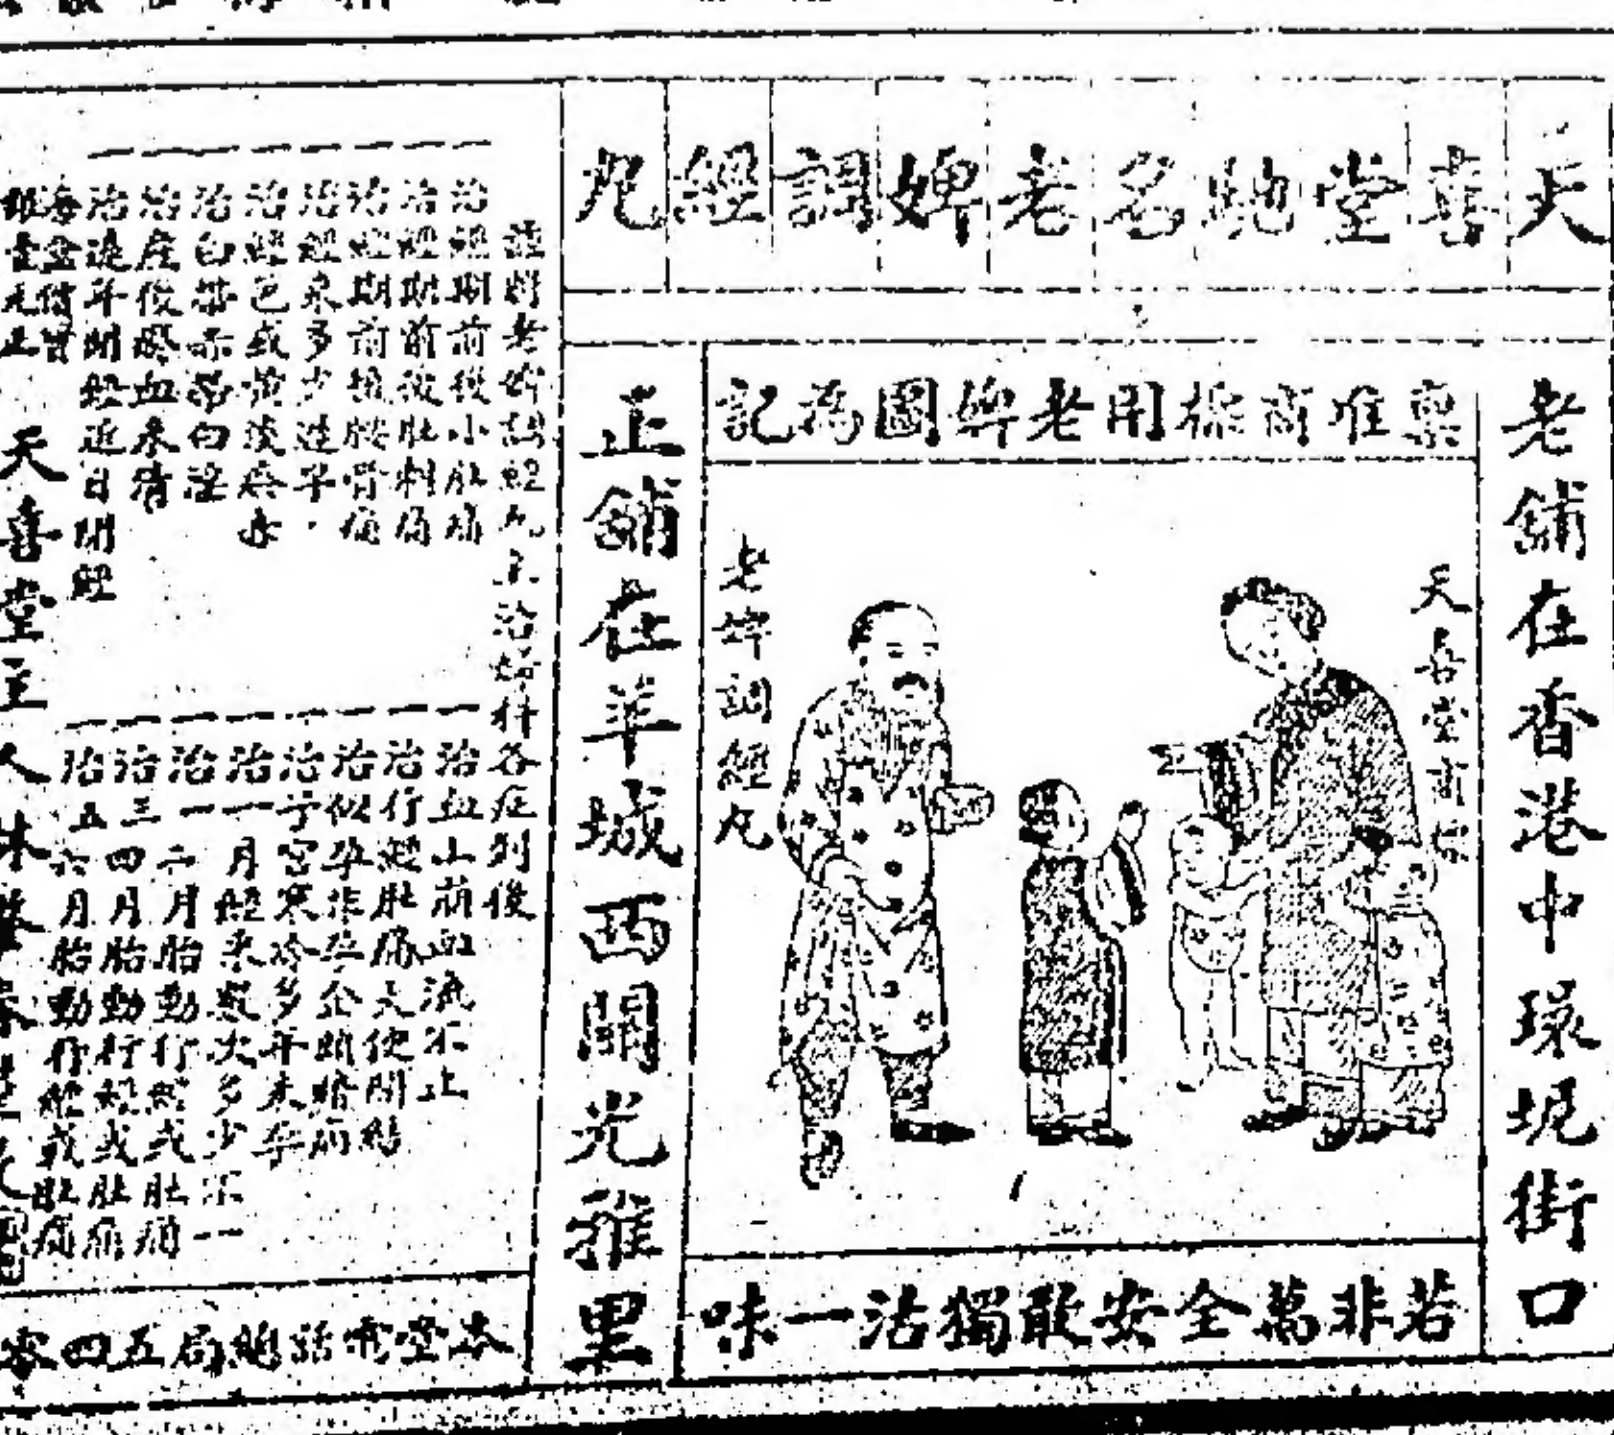 天喜堂馳名老婢調經丸
老舖在香港中環坭街口
稟准商標用老婢圖為記
天喜堂商標
老婢調經丸
若非萬全安敢獨沽一味
正舖在羊城西關光雅里
老婢調經丸主治婦科各症列後
一治經期前後小肚痛
一治經期前後肚刺痛
一治經期前後腰骨痛
一治經來多少遲早
一治經色或黃淡瘀赤
一治白帶赤帶白淫
一治產後瘀血未清
一治遠年閉經近日閉經
一治血山崩血流不止
一治行經肚痛大便閉結
一治似孕非孕企頭暗病
一治子宮寒冷多年未孕
一治一月經來數次多少不一
一治一二月胎動行經或肚痛
一治三四月胎動行經或肚痛
一治五六月胎動行經或肚痛
天喜堂主人
本堂電話總局五四零